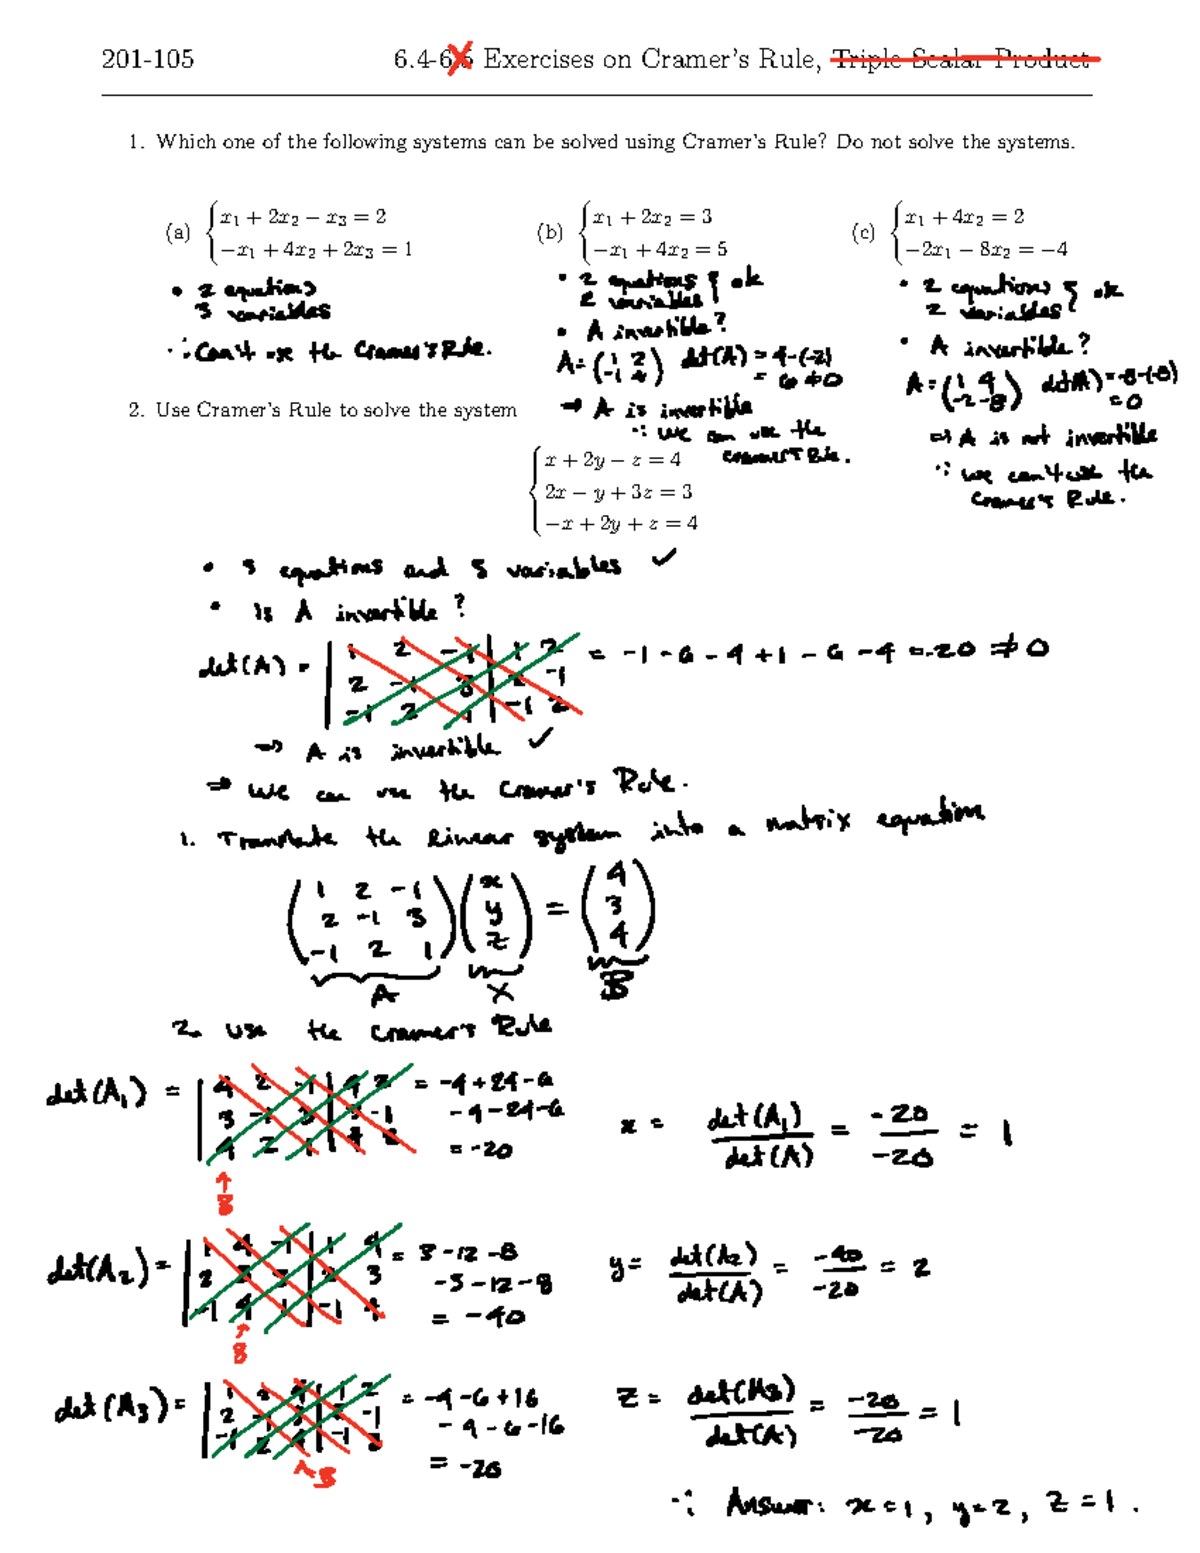 201-105 6.4-6.5 Exercises on Cramer's Rule, Triple Scalar Product
1. Which one of the following systems can be solved using Cramer's Rule? Do not solve the systems.
(a) { x₁ + 2x₂ − x₃ = 2
−x₁ + 4x₂ + 2x₃ = 1
• 2 equations
3 variables
∴ Can't use the Cramer's Rule.
(b) { x₁ + 2x₂ = 3
−x₁ + 4x₂ = 5
• 2 equations } ok
2 variables
• A invertible?
A = (1 2 det(A) = 4-(-2)
-1 4) = 6 ≠ 0
⇒ A is invertible
∴ We can use the
Cramer's Rule.
(c) { x₁ + 4x₂ = 2
−2x₁ − 8x₂ = −4
• 2 equations } ok
2 variables
• A invertible?
A = (1 4 det(A) = -8-(-8)
-2 -8) = 0
⇒ A is not invertible
∴ We can't use the
Cramer's Rule.
2. Use Cramer's Rule to solve the system
{ x + 2y − z = 4
2x − y + 3z = 3
−x + 2y + z = 4
• 3 equations and 3 variables ✓
• Is A invertible?
det(A) = | 1 2 -1 | 1 2 = -1 - 6 - 4 + 1 - 6 - 4 = -20 ≠ 0
2 -1 3 | 2 -1
-1 2 1 | -1 2
⇒ A is invertible ✓
⇒ We can use the Cramer's Rule.
1. Translate the linear system into a matrix equation
(1 2 -1) (x) = (4)
(2 -1 3) (y) (3)
(-1 2 1) (z) (4)
A X B
2. Use the Cramer's Rule
det(A₁) = | 4 2 -1 | 4 2 = -4 + 24 - 6
3 -1 3 | 3 -1 - 4 - 24 - 6
4 2 1 | 4 2 = -20
↑
B
x = det(A₁)/det(A) = -20/-20 = 1
det(A₂) = | 1 4 -1 | 1 4 = 3 - 12 - 8
2 3 3 | 2 3 - 3 - 12 - 8
-1 4 1 | -1 4 = -40
↑
B
y = det(A₂)/det(A) = -40/-20 = 2
det(A₃) = | 1 2 4 | 1 2 = -4 - 6 + 16
2 -1 3 | 2 -1 - 4 - 6 - 16
-1 2 4 | -1 2 = -20
↑ B
z = det(A₃)/det(A) = -20/-20 = 1
∴ Answer: x = 1, y = 2, z = 1.